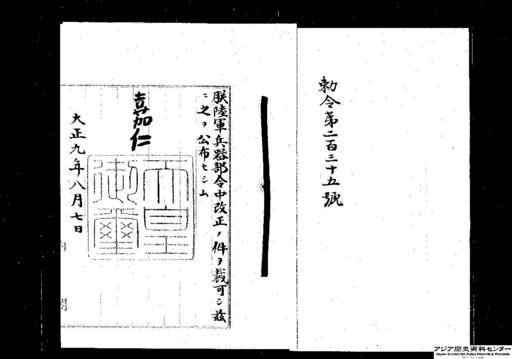 勅令第二百三十五號
朕陸軍兵器部令中改正ノ件ヲ裁可シ茲
ニ之ヲ公布セシム
嘉仁
天皇御璽
大正九年八月七日
アジア歴史資料センター
Japan Center for Asian Historical Records